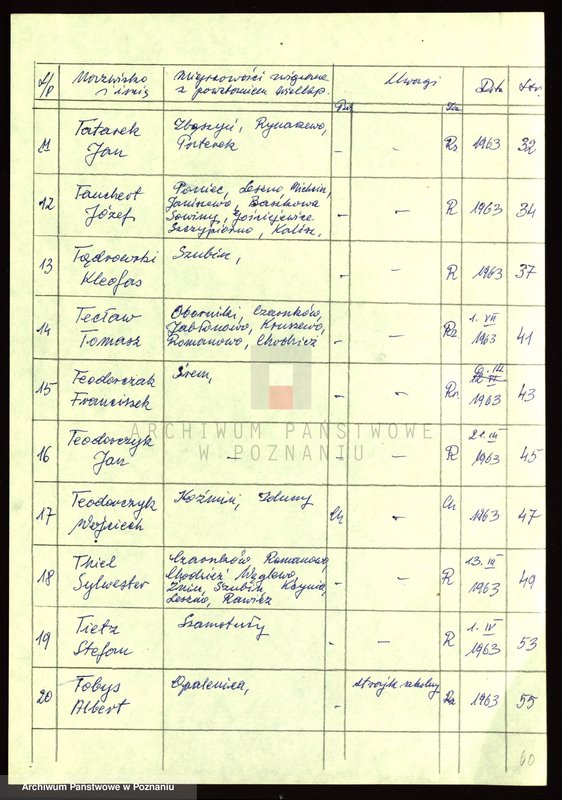 L/p Nazwisko i imię Miejscowości związane z powstaniem Wielkp. Uwagi Data Str.
11 Tatarek Jan Zbąszyń, Rynarzewo, – – R 1963 32
12 Tauchert Józef Poniec, Leszno, Janiszewo, Szczypiorno, Kalisz, – – R 1963 34
13 Kleofas Szubin, – – R 1963 37
14 Tecław Tomasz Oborniki, Czarnków, Jabłonowo, Kruszewo, Romanowo, Chodzież – – 1. VII 1963 41
15 Teodorczak Franciszek Śrem, – – 1963 43
16 Teodorczyk Jan – – R 21. III 1963 45
17 Teodorczyk Wojciech Koźmin, Zduny Ch – Ch 1963 47
18 Thiel Sylwester Czarnków, Romanowo, Chodzież, Żnin, Szubin, Kcynia, Leszno, Rawicz – – R 13. III 1963 49
19 Tietz Stefan Szamotuły – – R 1. IV 1963 53
20 Tobys Albert Opalenica, – strajk szkolny 1963 55
60
ARCHIWUM PAŃSTWOWE
W POZNANIU
Archiwum Państwowe w Poznaniu